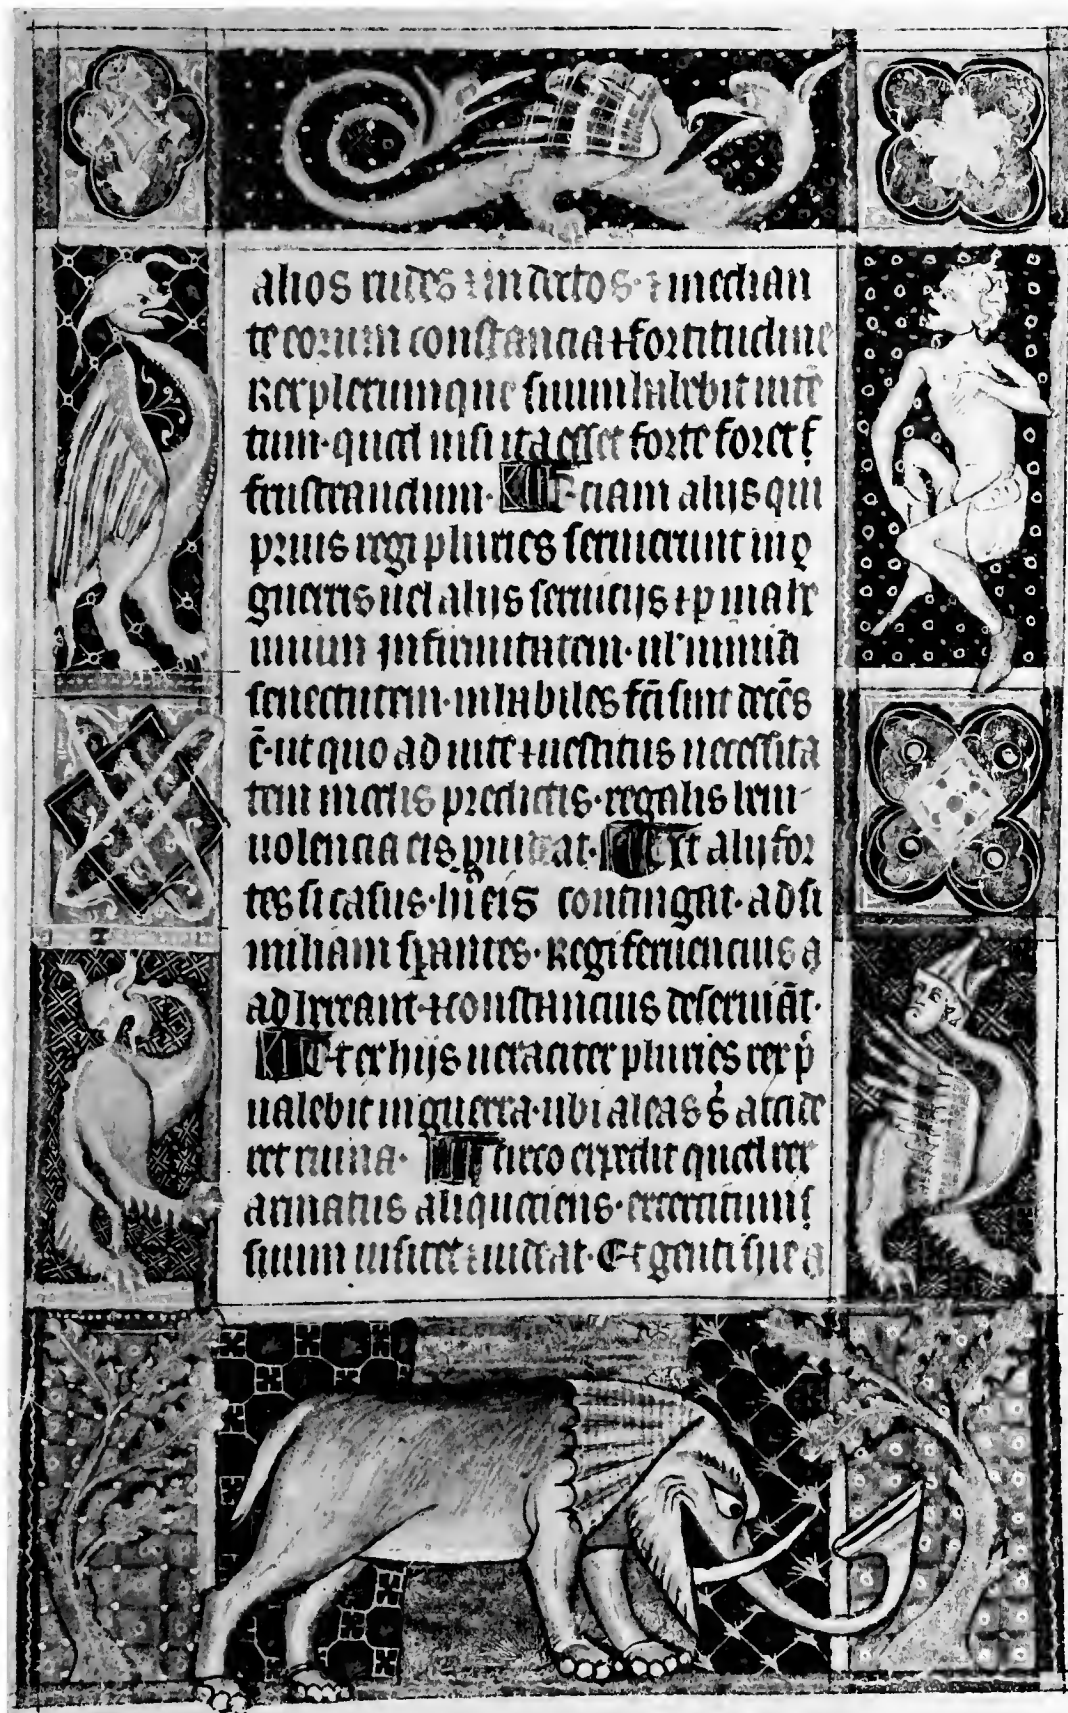 alios rudes ⁊ indoctos · ⁊ median
te eorum constancia ⁊ fortitudine
Rex plerumque suum habebit intē
tum · quod nisi ita esset forte foret
frustrandum · Etiam alijs qui
prius regi pluries seruierunt in
guerris uel alijs seruicijs ⁊ p male
infirmitatem · ul' nimiā
senectutem · inhabiles fc̄i sunt decēs
ē · ut quo ad uite ⁊ uestitus necessita
tem in metis predictis · regalis beni
uolencia eis puideat · Et alij for
tes si casus · hui'eis contingat · ad si
milia sperantes · Regi feruencius
adhereant ⁊ constancius deseruiāt ·
Et ex hijs ueraciter pluries rex p̄
ualebit in guerra · ubi aleas s̄ accide
ret ruina · Idcirco expedit quod rex
armatus aliquociens · exercitum
suum uisitet ⁊ uideat · Et genti sue a